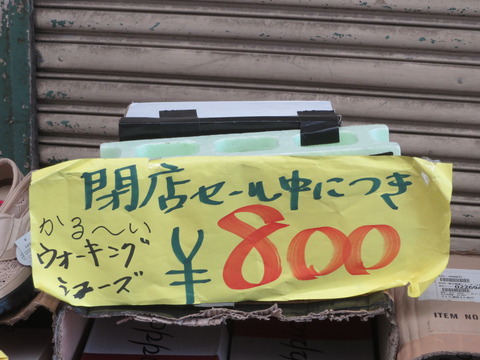 閉店セール中につき
かる〜い
ウォーキング
シューズ
¥800
ITEM NO